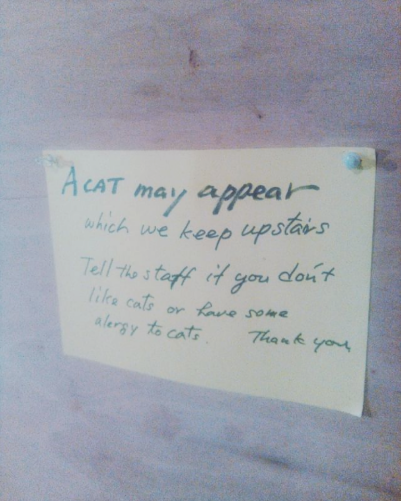 A CAT may appear
which we keep upstairs
Tell the staff if you don't
like cats or have some
alergy to cats. Thank you